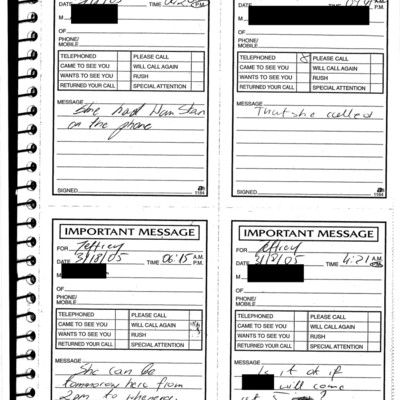 DATE 3/8/05 TIME P.M.
M
OF
PHONE/
MOBILE
TELEPHONED PLEASE CALL
CAME TO SEE YOU WILL CALL AGAIN
WANTS TO SEE YOU RUSH
RETURNED YOUR CALL SPECIAL ATTENTION
MESSAGE
She had
on the phone
SIGNED 1184
DATE TIME P.M.
OF
PHONE/
MOBILE
TELEPHONED X PLEASE CALL
CAME TO SEE YOU WILL CALL AGAIN
WANTS TO SEE YOU RUSH
RETURNED YOUR CALL SPECIAL ATTENTION
MESSAGE
That she called
SIGNED 1184
IMPORTANT MESSAGE
FOR Jeffrey
DATE 3/8/05 TIME 06:15 A.M. P.M.
M
OF
PHONE/
MOBILE
TELEPHONED PLEASE CALL
CAME TO SEE YOU WILL CALL AGAIN
WANTS TO SEE YOU RUSH
RETURNED YOUR CALL SPECIAL ATTENTION
MESSAGE
She can be
tommorow here from
2pm to whenever
IMPORTANT MESSAGE
FOR Jeffrey
DATE 3/8/05 TIME 4:21 A.M.
M
OF
PHONE/
MOBILE
TELEPHONED PLEASE CALL
CAME TO SEE YOU WILL CALL AGAIN
WANTS TO SEE YOU RUSH
RETURNED YOUR CALL SPECIAL ATTENTION
MESSAGE
Is it ok if
will come
at